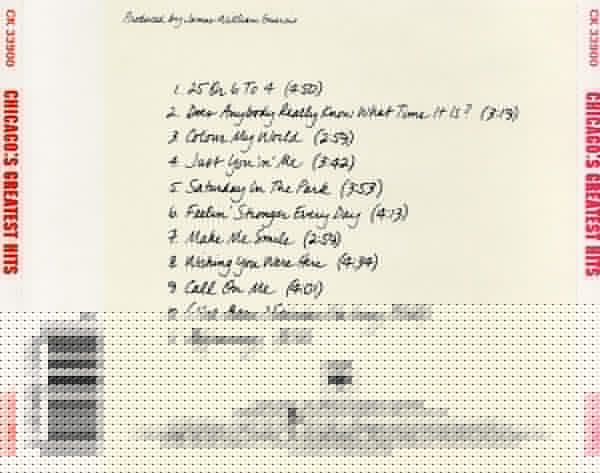 CK 33900
CHICAGO'S GREATEST HITS
Produced by James William Guercio
1. 25 Or 6 To 4 (4:50)
2. Does Anybody Really Know What Time It Is? (3:13)
3. Colour My World (2:59)
4. Just You 'n' Me (3:42)
5. Saturday In The Park (3:53)
6. Feelin' Stronger Every Day (4:13)
7. Make Me Smile (2:59)
8. Wishing You Were Here (4:34)
9. Call On Me (4:01)
CK 33900
CHICAGO'S GREATEST HITS